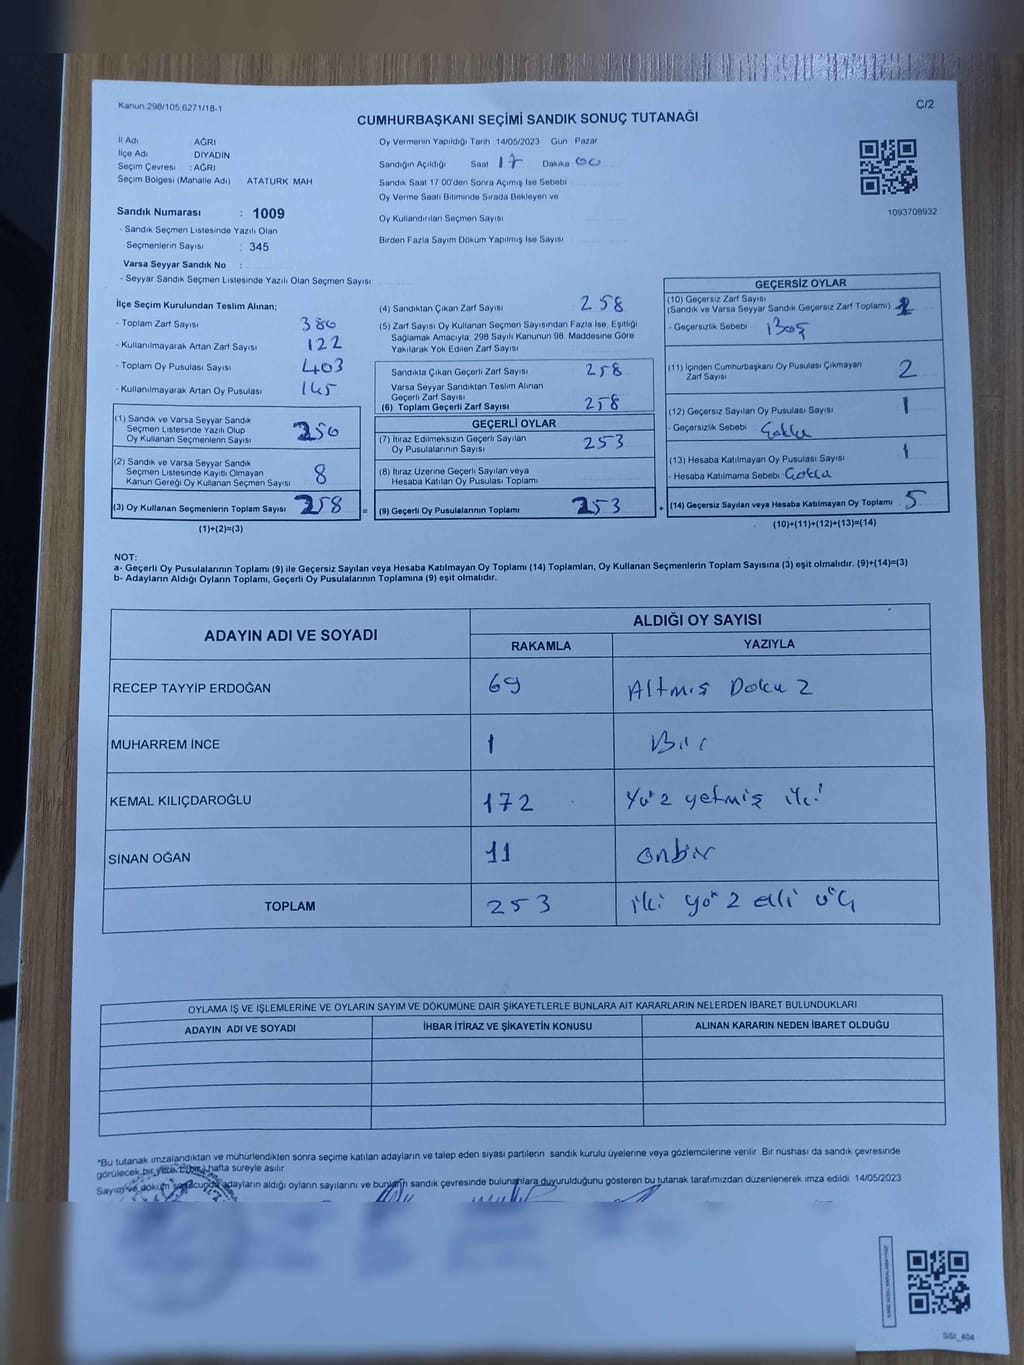 Kanun.298/105,6271/18-1
C/2
CUMHURBAŞKANI SEÇİMİ SANDIK SONUÇ TUTANAĞI
İl Adı AĞRI
İlçe Adı DİYADİN
Seçim Çevresi : AĞRI
Seçim Bölgesi (Mahalle Adı) ATATURK MAH
Sandık Numarası : 1009
- Sandık Seçmen Listesinde Yazılı Olan
Seçmenlerin Sayısı : 345
Varsa Seyyar Sandık No :
- Seyyar Sandık Seçmen Listesinde Yazılı Olan Seçmen Sayısı:
Oy Vermenin Yapıldığı Tarih 14/05/2023 Gün Pazar
Sandığın Açıldığı Saat 17 Dakika 00
Sandık Saat 17.00'den Sonra Açımış İse Sebebi
Oy Verme Saati Bitiminde Sırada Bekleyen ve
Oy Kullandırılan Seçmen Sayısı
Birden Fazla Sayım Döküm Yapılmış İse Sayısı
1093708932
İlçe Seçim Kurulundan Teslim Alınan;
- Toplam Zarf Sayısı 380
- Kullanılmayarak Artan Zarf Sayısı 122
- Toplam Oy Pusulası Sayısı 403
- Kullanılmayarak Artan Oy Pusulası 145
(1) Sandık ve Varsa Seyyar Sandık
Seçmen Listesinde Yazılı Olup
Oy Kullanan Seçmenlerin Sayısı 250
(2) Sandık ve Varsa Seyyar Sandık
Seçmen Listesinde Kayıtlı Olmayan
Kanun Gereği Oy Kullanan Seçmen Sayısı 8
(3) Oy Kullanan Seçmenlerin Toplam Sayısı 258
(1)+(2)=(3)
(4) Sandıktan Çıkan Zarf Sayısı 258
(5) Zarf Sayısı Oy Kullanan Seçmen Sayısından Fazla İse, Eşitliği
Sağlamak Amacıyla, 298 Sayılı Kanunun 98. Maddesine Göre
Yakılarak Yok Edilen Zarf Sayısı
Sandıkta Çıkan Geçerli Zarf Sayısı 258
Varsa Seyyar Sandıktan Teslim Alınan
Geçerli Zarf Sayısı
(6) Toplam Geçerli Zarf Sayısı 258
GEÇERLİ OYLAR
(7) İtiraz Edilmeksizin Geçerli Sayılan
Oy Pusulalarının Sayısı 253
(8) İtiraz Üzerine Geçerli Sayılan veya
Hesaba Katılan Oy Pusulası Toplamı
= (9) Geçerli Oy Pusulalarının Toplamı 253
GEÇERSİZ OYLAR
(10) Geçersiz Zarf Sayısı
(Sandık ve Varsa Seyyar Sandık Geçersiz Zarf Toplamı) 1
- Geçersizlik Sebebi Boş
(11) İçinden Cumhurbaşkanı Oy Pusulası Çıkmayan
Zarf Sayısı 2
(12) Geçersiz Sayılan Oy Pusulası Sayısı 1
- Geçersizlik Sebebi
(13) Hesaba Katılmayan Oy Pusulası Sayısı 1
- Hesaba Katılmama Sebebi
+ (14) Geçersiz Sayılan veya Hesaba Katılmayan Oy Toplamı 5
(10)+(11)+(12)+(13)=(14)
NOT:
a- Geçerli Oy Pusulalarının Toplamı (9) ile Geçersiz Sayılan veya Hesaba Katılmayan Oy Toplamı (14) Toplamları, Oy Kullanan Seçmenlerin Toplam Sayısına (3) eşit olmalıdır. (9)+(14)=(3)
b- Adayların Aldığı Oyların Toplamı, Geçerli Oy Pusulalarının Toplamına (9) eşit olmalıdır.
ADAYIN ADI VE SOYADI ALDIĞI OY SAYISI
RAKAMLA YAZIYLA
RECEP TAYYİP ERDOĞAN 69 Altmış Doku z
MUHARREM İNCE 1 Bir
KEMAL KILIÇDAROĞLU 172 Yüz yetmiş iki
SİNAN OĞAN 11 onbir
TOPLAM 253 iki yüz elli üç
OYLAMA İŞ VE İŞLEMLERİNE VE OYLARIN SAYIM VE DÖKÜMÜNE DAİR ŞİKAYETLERLE BUNLARA AİT KARARLARIN NELERDEN İBARET BULUNDUKLARI
ADAYIN ADI VE SOYADI İHBAR İTİRAZ VE ŞİKAYETİN KONUSU ALINAN KARARIN NEDEN İBARET OLDUĞU
*Bu tutanak imzalandıktan ve mühürlendikten sonra seçime katılan adayların ve talep eden siyasi partilerin sandık kurulu üyelerine veya gözlemcilerine verilir. Bir nüshası da sandık çevresinde
görülecek bir yere hafta süreyle asılır.
Sayım ve döküm sonucunda adayların aldığı oyların sayılarını ve bunların sandık çevresinde bulunanlara duyurulduğunu gösteren bu tutanak tarafımızdan düzenlenerek imza edildi. 14/05/2023
SSI_404